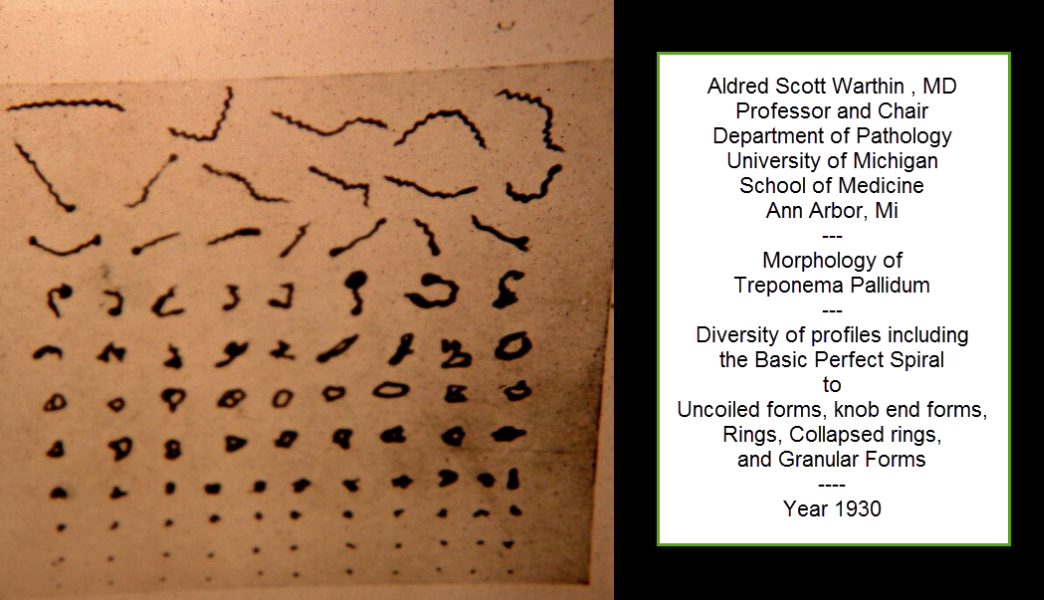 Aldred Scott Warthin , MD
Professor and Chair
Department of Pathology
University of Michigan
School of Medicine
Ann Arbor, Mi
---
Morphology of
Treponema Pallidum
---
Diversity of profiles including
the Basic Perfect Spiral
to
Uncoiled forms, knob end forms,
Rings, Collapsed rings,
and Granular Forms
----
Year 1930